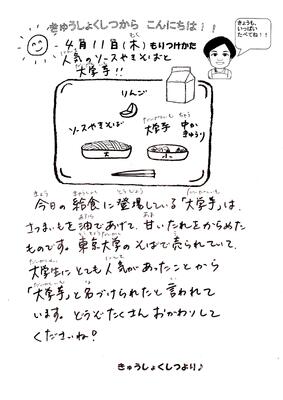 きゅうしょくしつから こんにちは!!
きょうも、
いっぱい
たべてね!!
4月11日(木) もりつけかた
人気のソースやきそばと
大学芋!!
りんご
ソースやきそば
大学芋
中か
きゅうり
今日の給食に登場している「大学芋」は、
さつまいもを油であげて、甘いたれをからめた
ものです。東京大学のそばで売られていて、
大学生にとても人気があったことから
「大学芋」と名づけられたと言われて
います。どうぞたくさんおかわりして
くださいね!
きゅうしょくしつより♪